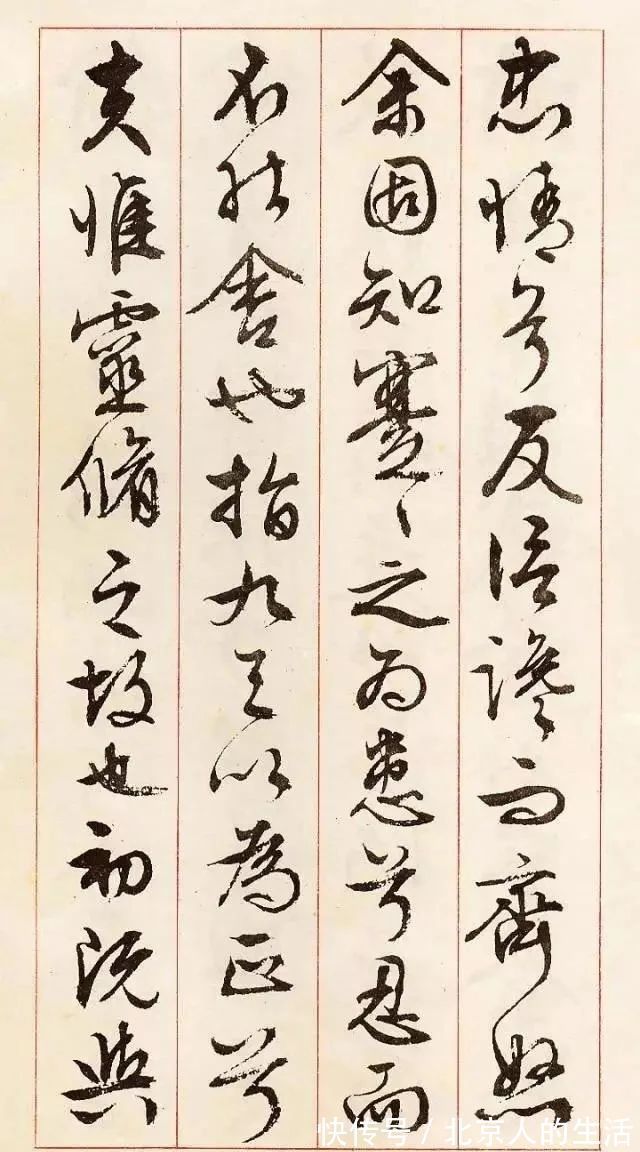 忠情兮反信讒而齊怒
余固知蹇〻之為患兮忍而
不能舍也指九天以為正兮
夫惟靈脩之故也初既與
快传号/北京人的生活